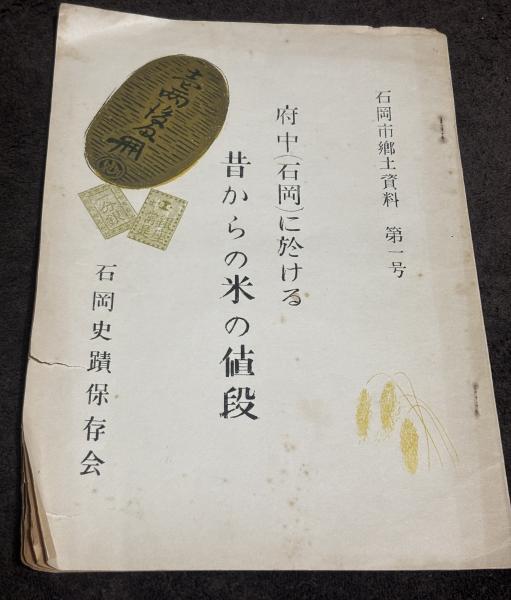 石岡市郷土資料 第一号
府中(石岡)に於ける
昔からの米の値段
石岡史蹟保存会